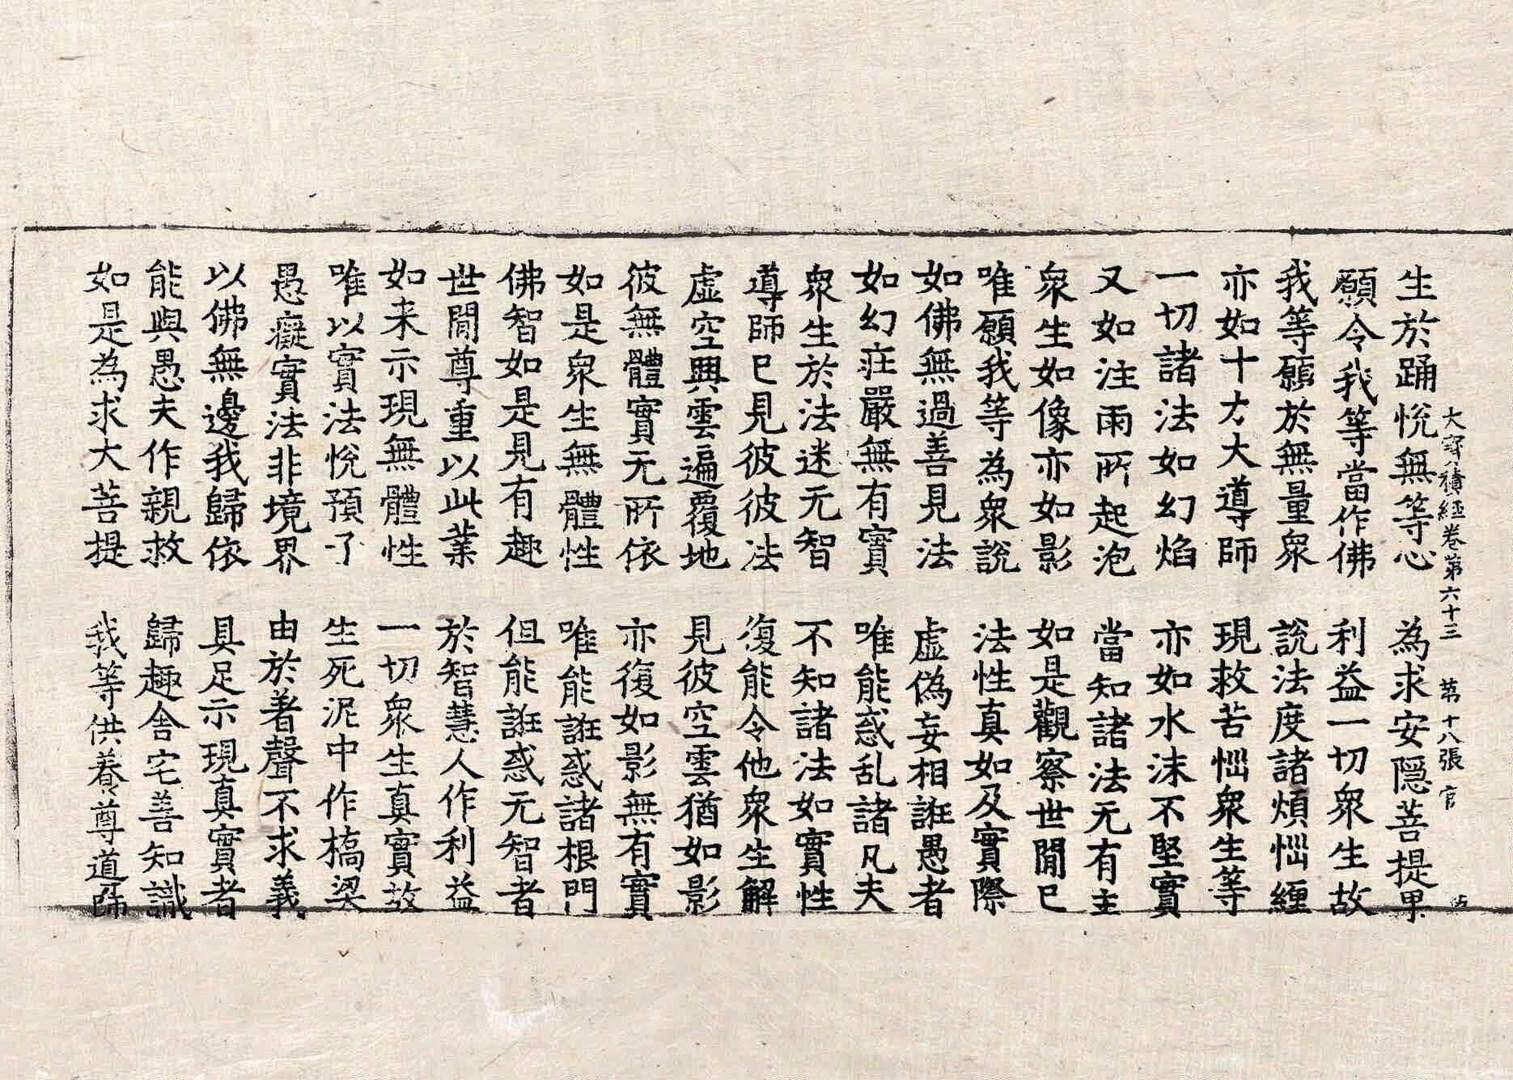 大寶積經卷第六十三　第十八張　官
生於踊悅無等心　為求安隱菩提果
願令我等當作佛　利益一切衆生故
我等願於無量衆　說法度諸煩惱纏
亦如十方大導師　現救苦惱衆生等
一切諸法如幻焰　亦如水沫不堅實
又如注雨所起泡　當知諸法无有主
衆生如像亦如影　如是觀察世間已
唯願我等為衆說　法性真如及實際
如佛無過善見法　虛偽妄相誑愚者
如幻莊嚴無有實　唯能惑乱諸凡夫
衆生於法迷无智　不知諸法如實性
導師已見彼彼法　復能令他衆生解
虛空興雲遍覆地　見彼空雲猶如影
彼無體實无所依　亦復如影無有實
如是衆生無體性　唯能誑惑諸根門
佛智如是見有趣　但能誑惑无智者
世間尊重以此業　於智慧人作利益
如来示現無體性　一切衆生真實故
唯以實法悅預了　生死泥中作橋梁
愚癡實法非境界　由於著聲不求義
以佛無邊我歸依　具足示現真實者
能與愚夫作親救　歸趣舍宅善知識
如是為求大菩提　我等供養尊道師